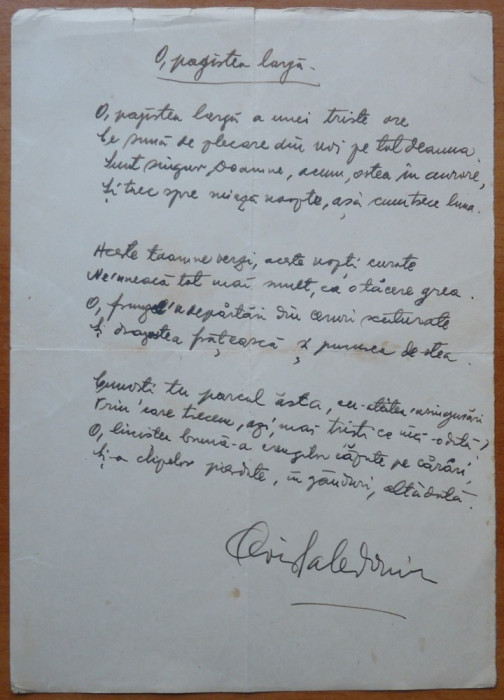 O, pajiștea largă.
O, pajiștea largă a unei triste ore
Ce sună de plecare din noi pe totdeauna.
Sunt singur, Doamne, acum, ostea în aurore,
Și trec spre miază noapte, așa cum trece luna.
Aceste toamne vergi, aceste nopți curate
Ne'nneacă tot mai mult, ca o tăcere grea.
O, frunze'n depărtări din ceruri scuturate
Și dragostea frățească și pururea de stea.
Cunosti tu parcul ăsta, cu-atâtea 'nsingurări
Prin 'care trecem, azi, mai triști ca nici-odată?
O, liniștea brună-a crengilor căzute pe cărări,
Și-a clipelor pierdute, în gânduri, altădată.